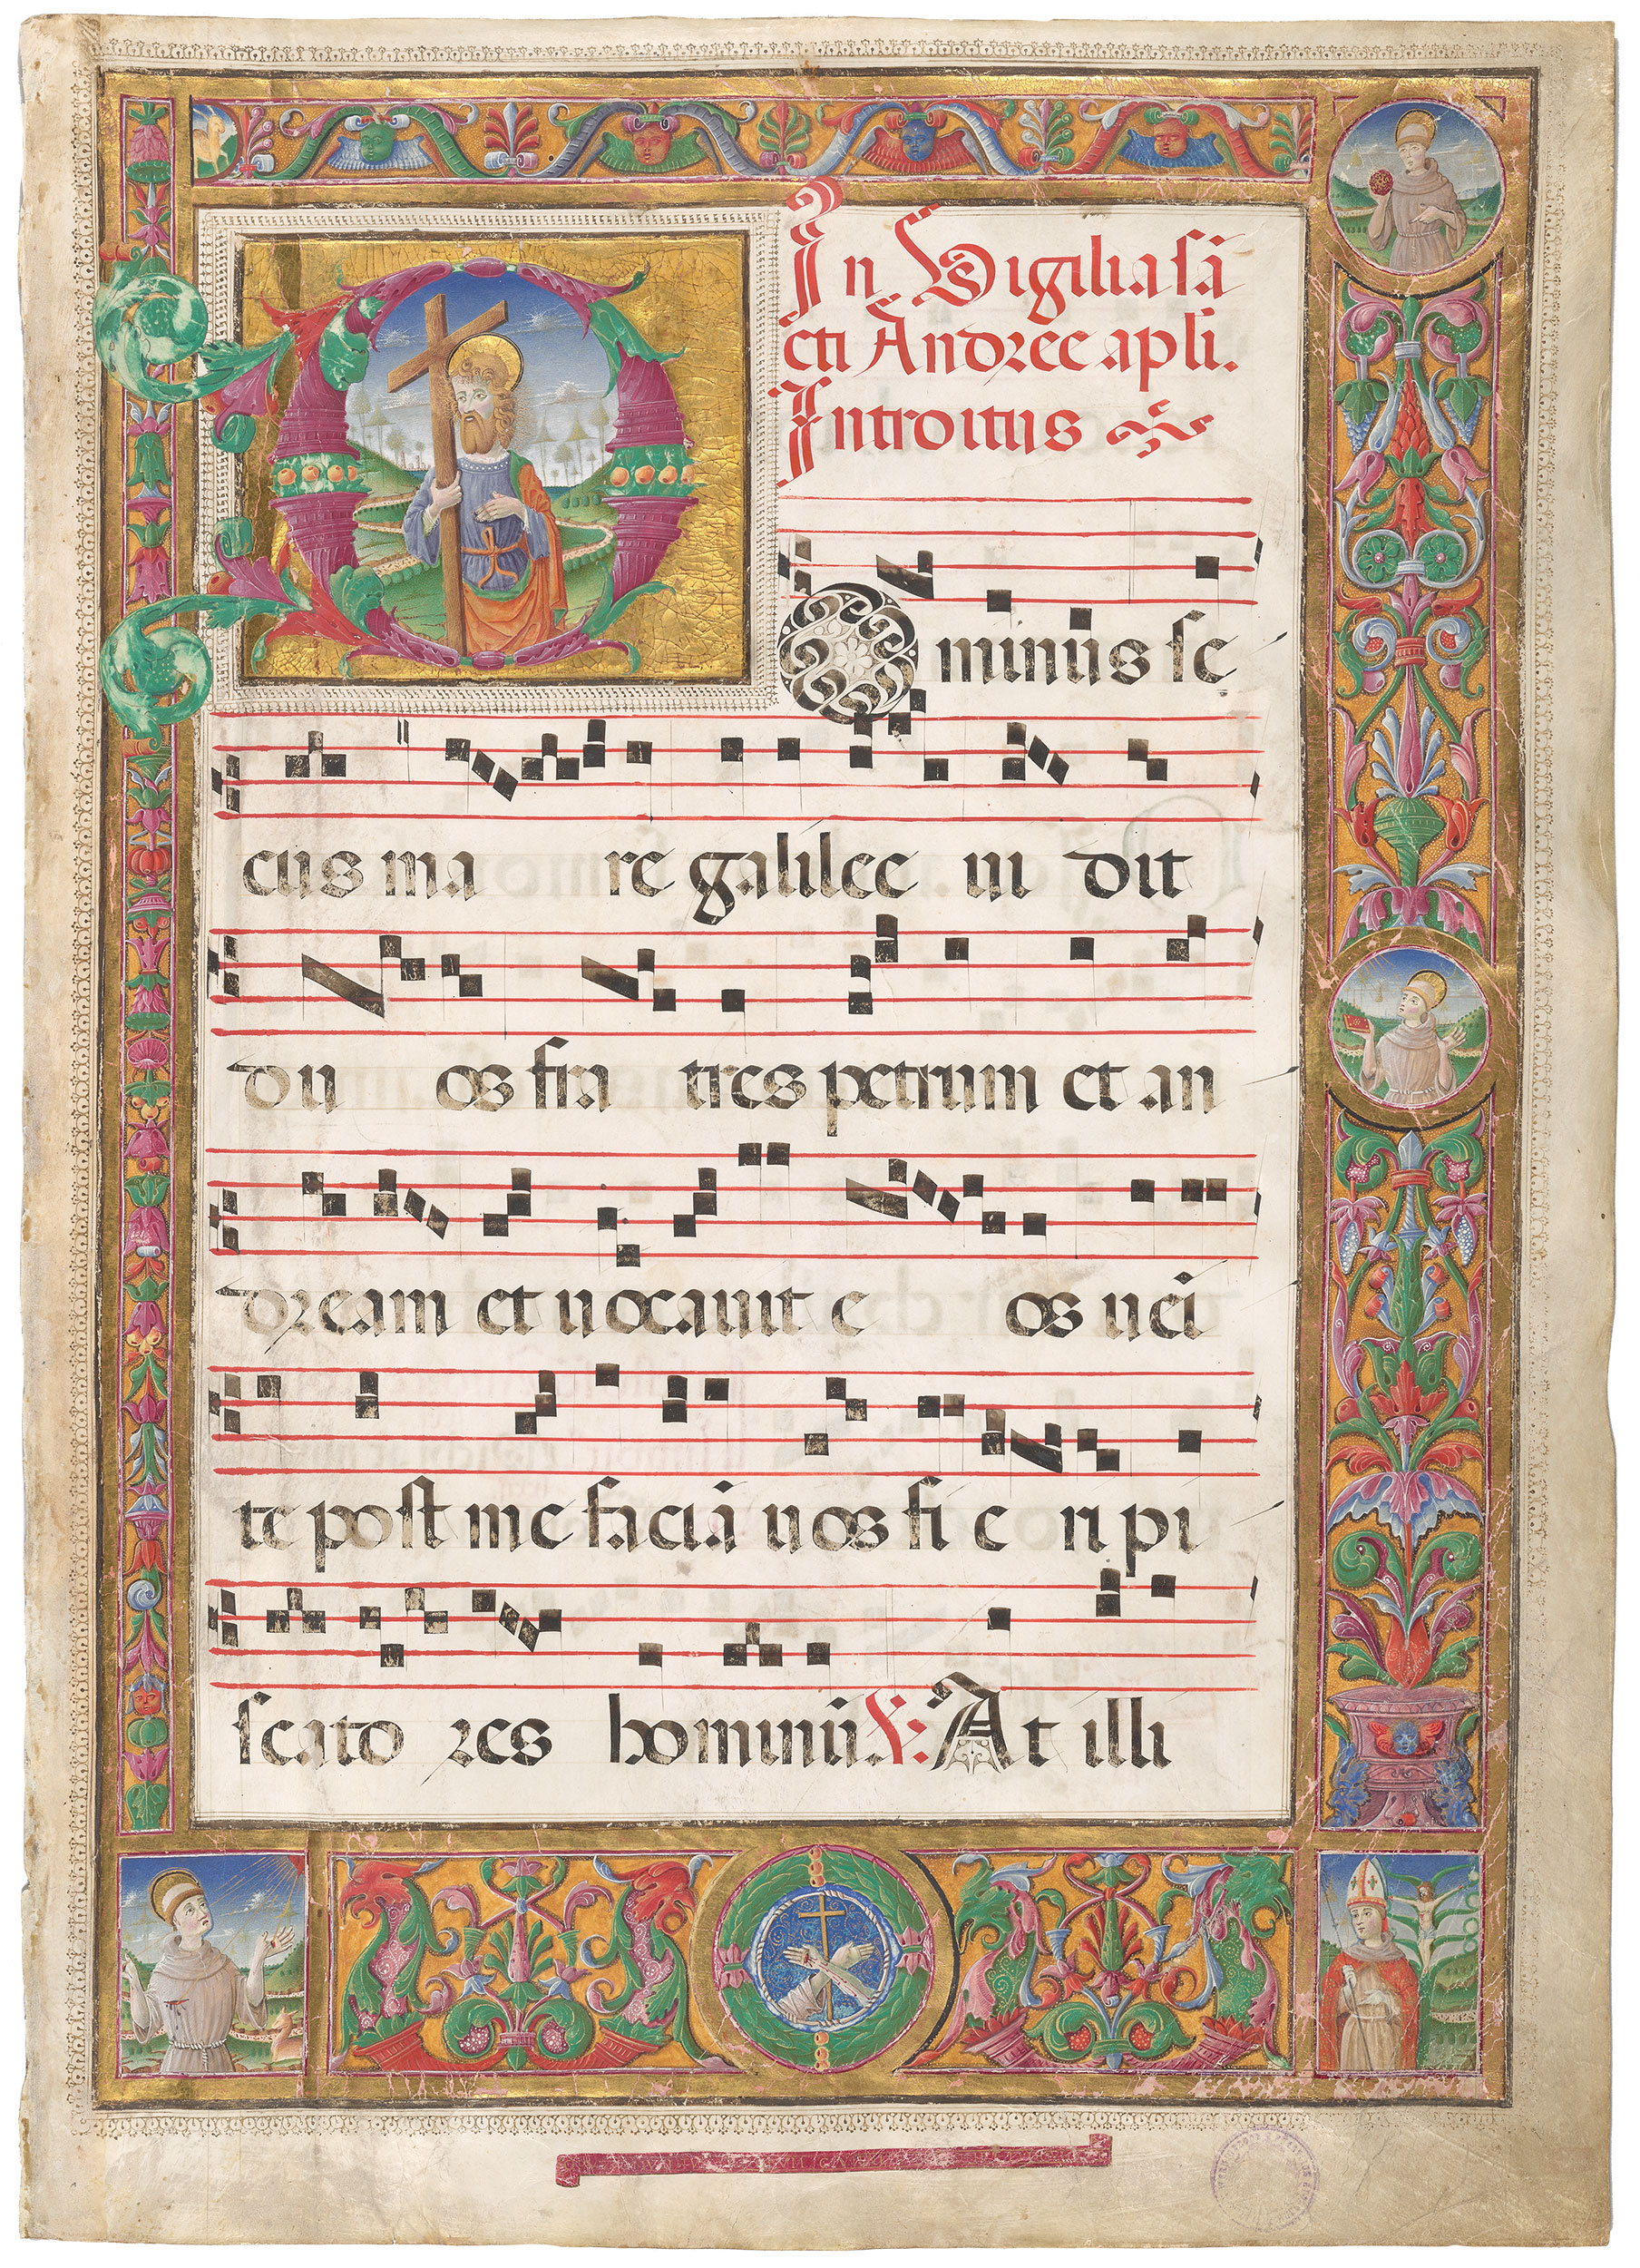 In Vigilia sā
cti Andree apli.
Introitus
Ominus se
cus ma re galilee ui dit
du os fra tres petrum et an
dream et uocauit e os uēi
te post me faciā uos fi e ri pi
scato res hominū. ℣: At illi